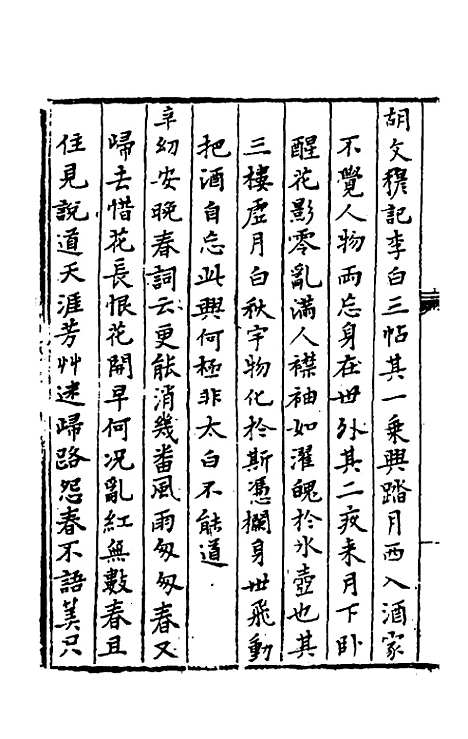 胡文穆記李白三帖其一乗興踏月西入酒家
不覺人物兩忘身在世外其二夜来月下卧
醒花影零亂滿人襟袖如濯魄於氷壺也其
三樓虛月白秋宇物化於斯憑欄身世飛動
把酒自忘此興何極非太白不能道
辛幼安晚春詞云更能消幾番風雨匆匆春又
歸去惜花長恨花開早何况亂紅無數春且
住見說道天涯芳艸迷歸路怨春不語筭只